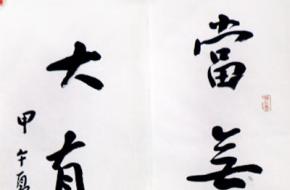 當無
大有
甲午夏